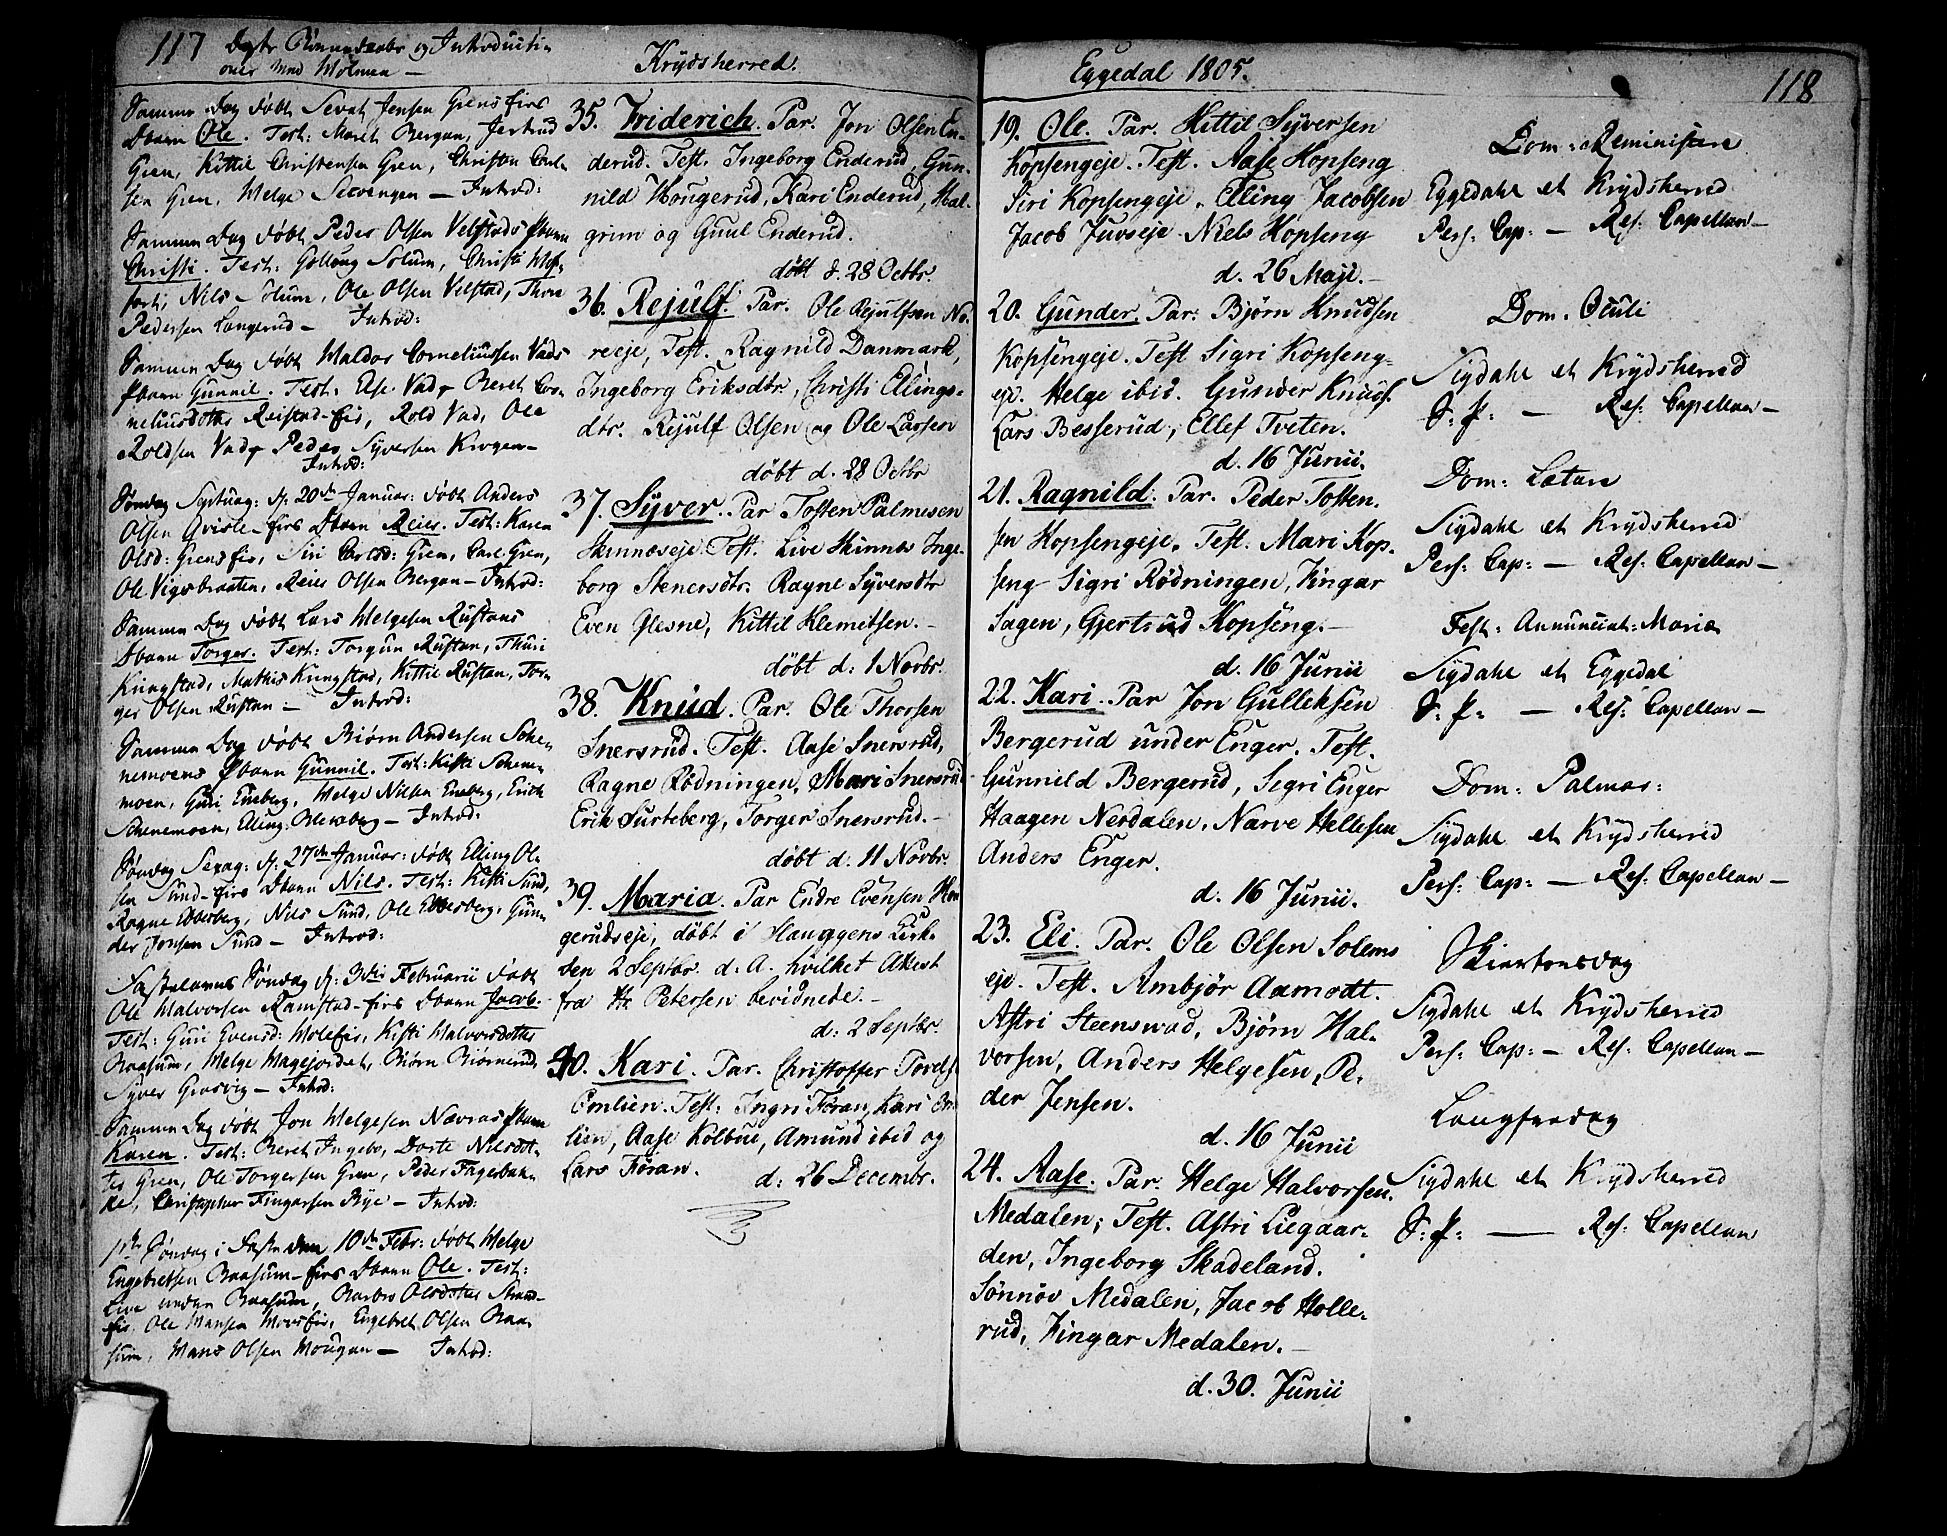 117
Døbte Børnedaabe og Introducti-
oner med Holmen —
Samme Dag døbt Sevat Jensen Grensfirs
Dbarn Ole. Test: Marit Bergan, Jertrud
Gren, Kittil Christensen Gren, Christen Carl-
sen Gren, Helge — Introd:
Samme Dag døbt Peder Olsen Velstads Pbarn
Christi. Test: Golloug Solum, Christi
Nils Solum, Ole Olsen Velstad, Thore
Pedersen Langerud — Introd:
Samme Dag døbt Haldor Corneliussen Vads
Pbarn Gunnil. Test: Else Vad, Beret Cor-
neliusdotter Reistad-fir, Rold Vad, Ole
Roldsen Vad, Peder Syversen Krogen —
Introd:
Søndag Septuag: d. 20de Januar: døbt Anders
Olsen Qvisle-firs Dbarn Reier. Test: Karen
Olsd: Grensfir, Siri Carlsd: Gren, Carl Gren,
Ole Vigsbraaten, Reier Olsen Bergan — Introd:
Samme Dag døbt Lars Helgesen Rustans
Dbarn Torger. Test: Torgun Rustan, Thuri
Kringstad, Mathis Kringstad, Kittil Rustan, Tor-
ger Olsen Rustan — Introd:
Samme Dag døbt Biørn Andersen Schen-
nemoens Pbarn Gunnil. Test: Kisti Schenne-
moen, Guri Eneberg, Helge Nilsen Eneberg, Erich
Schennemoen, Elling — Introd:
Søndag Sexag: d. 27de Januar: døbt Elling Ol-
sen Sund-firs Dbarn Nils. Test: Kisti Sund,
Ragne Ebbesberg, Nils Sund, Ole Ebbesberg, Gun-
der Jonsen Sund — Introd:
Fastelavns Søndag d: 3die Februarii døbt
Ole Halvorsen Ramstad-firs Dbarn Jacob.
Test: Guri Evensd: Molefir, Kisti Halvorsdotter
Raasum, Helge Hagejordet, Biørn Biørnerud,
Syver Grøsvig — Introd:
Samme Dag døbt Jon Helgesen Navras Pbarn
Karen. Test: Beret Ingebo, Dorte Nilsdot-
ter Gren, Ole Torgersen Gren, Peder Fagerbak-
ke, Christopher Fingarsen Bye — Introd:
1ste Søndag i Faste den 10de Febr: døbt Helge
Engebretsen Raasum-firs Dbarn Ole. Test:
Live under Raasum, Barbro Olsdotter Strand-
fir, Ole Hansen Moesfir, Engebret Olsen Raa-
sum, Hans Olsen Hougan — Introd:
Krydsherred.
35. Friderich. Par. Jon Olsen En-
derud. Test. Ingeborg Enderud, Gun-
nild Hougerud, Kari Enderud, Hal-
grim og Guul Enderud.
døbt d. 28 Octbr.
36. Rejulf. Par. Ole Rejulfsen No-
reeje, Test. Ragnild Danmark,
Ingeborg Eriksdtr., Christi Ellings-
dtr. Rejulf Olsen og Ole Larsen
døbt d. 28 Octbr
37. Syver. Par Tosten Palmesen
Skinneseje. Test. Live Skinnes Inge-
borg Stenersdtr. Ragne Syversdtr
Even Glesne, Kittil Klemitsen. —
døbt d: 1 Novbr.
38. Knud. Par. Ole Thorsen
Snersrud. Test. Aase Snersrud,
Ragne Rødningen, Mari Snersrud
Erik Surteberg, Torger Snersrud. —
døbt d. 11 Novbr.
39. Maria. Par Endre Evensen Hou
gerudseje, døbt i Hauggens Kirk-
ken 2 Septbr. d. A. hvilket Attest
fra Hr Petersen bevidnede. —
d: 2 Septbr.
40. Kari. Par. Christoffer Torels
Omlien. Test: Ingri Føran, Kari Om
lien, Aase Kolbue, Amund ibid og
Lars Føran.
d: 26 Decembr.
Eggedal 1805.
118
19. Ole. Par. Kittil Syversen
Kopsengeje. Test. Aase Kopseng
Siri Kopsengeje. Elling Jacobsen
Jacob Juvseje. Niels Kopseng
d. 26 Maji. —
20. Gunder. Par: Bjørn Knudsen
Kopsengeje. Test Sigri Kopseng-
eje. Helge ibid. Gunder Knuds.
Lars Besserud, Ellef Tveten.
d. 16 Junii.
21. Ragnild. Par. Peder Tosten-
sen Kopsengeje. Test. Mari Kop-
seng Sigri Rødningen, Fingar
Sagen, Gjertrud Kopseng. —
d. 16 Junii
22. Kari. Par Jon Gulleksen
Bergerud under Enger. Test.
Gunnild Bergerud, Sigri Enger
Haagen Nerdalen, Narve Hellesen
Anders Enger.
d. 16 Junii.
23. Eli. Par. Ole Olsen Solems
eje. Test. Ambjør Aamodt.
Astri Steenswad, Bjørn Hal-
vorsen, Anders Helgesen, Pe-
der Jensen.
d. 16 Junii
24. Aase. Par. Helge Halvorsen.
Medalen; Test. Astri Liegaar-
den, Ingeborg Skadeland.
Sønnøv Medalen, Jacob Holle-
rud, Fingar Medalen. —
d. 30. Junii
Dom: Reminiscere
Eggedahl et Krydsherred
Pers: Cap: — Res: Capellan —
Dom. Oculi
Sigdahl et Krydsherred
S: P: — Res: Capellan —
Dom: Lætare
Sigdahl et Krydsherred
Pers: Cap: — Res: Capellan —
Fest: Annunciat: Mariæ
Sigdahl et Eggedal
S: P: — Res: Capellan —
Dom: Palmar:
Sigdahl et Krydsherred
Pers: Cap: — Res: Capellan —
Skiertorsdag
Sigdahl et Krydsherred
Pers: Cap: — Res: Capellan —
Langfredag
Sigdahl et Krydsherred
S: P: — Res: Capellan